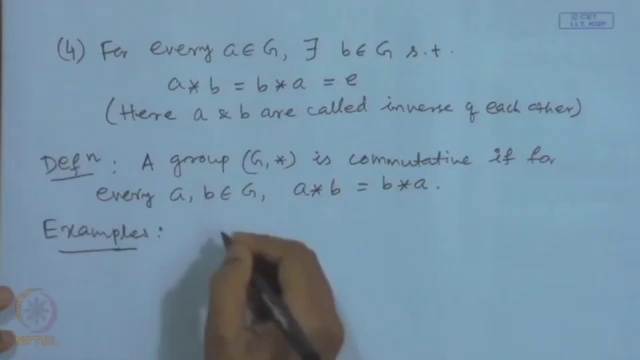 © CET
I.I.T. KGP
(4) For every a ∈ G, ∃ b ∈ G s.t.
a * b = b * a = e
(Here a & b are called inverse of each other)
Defⁿ: A group (G, *) is commutative if for
every a, b ∈ G, a * b = b * a.
Examples:
NPTEL